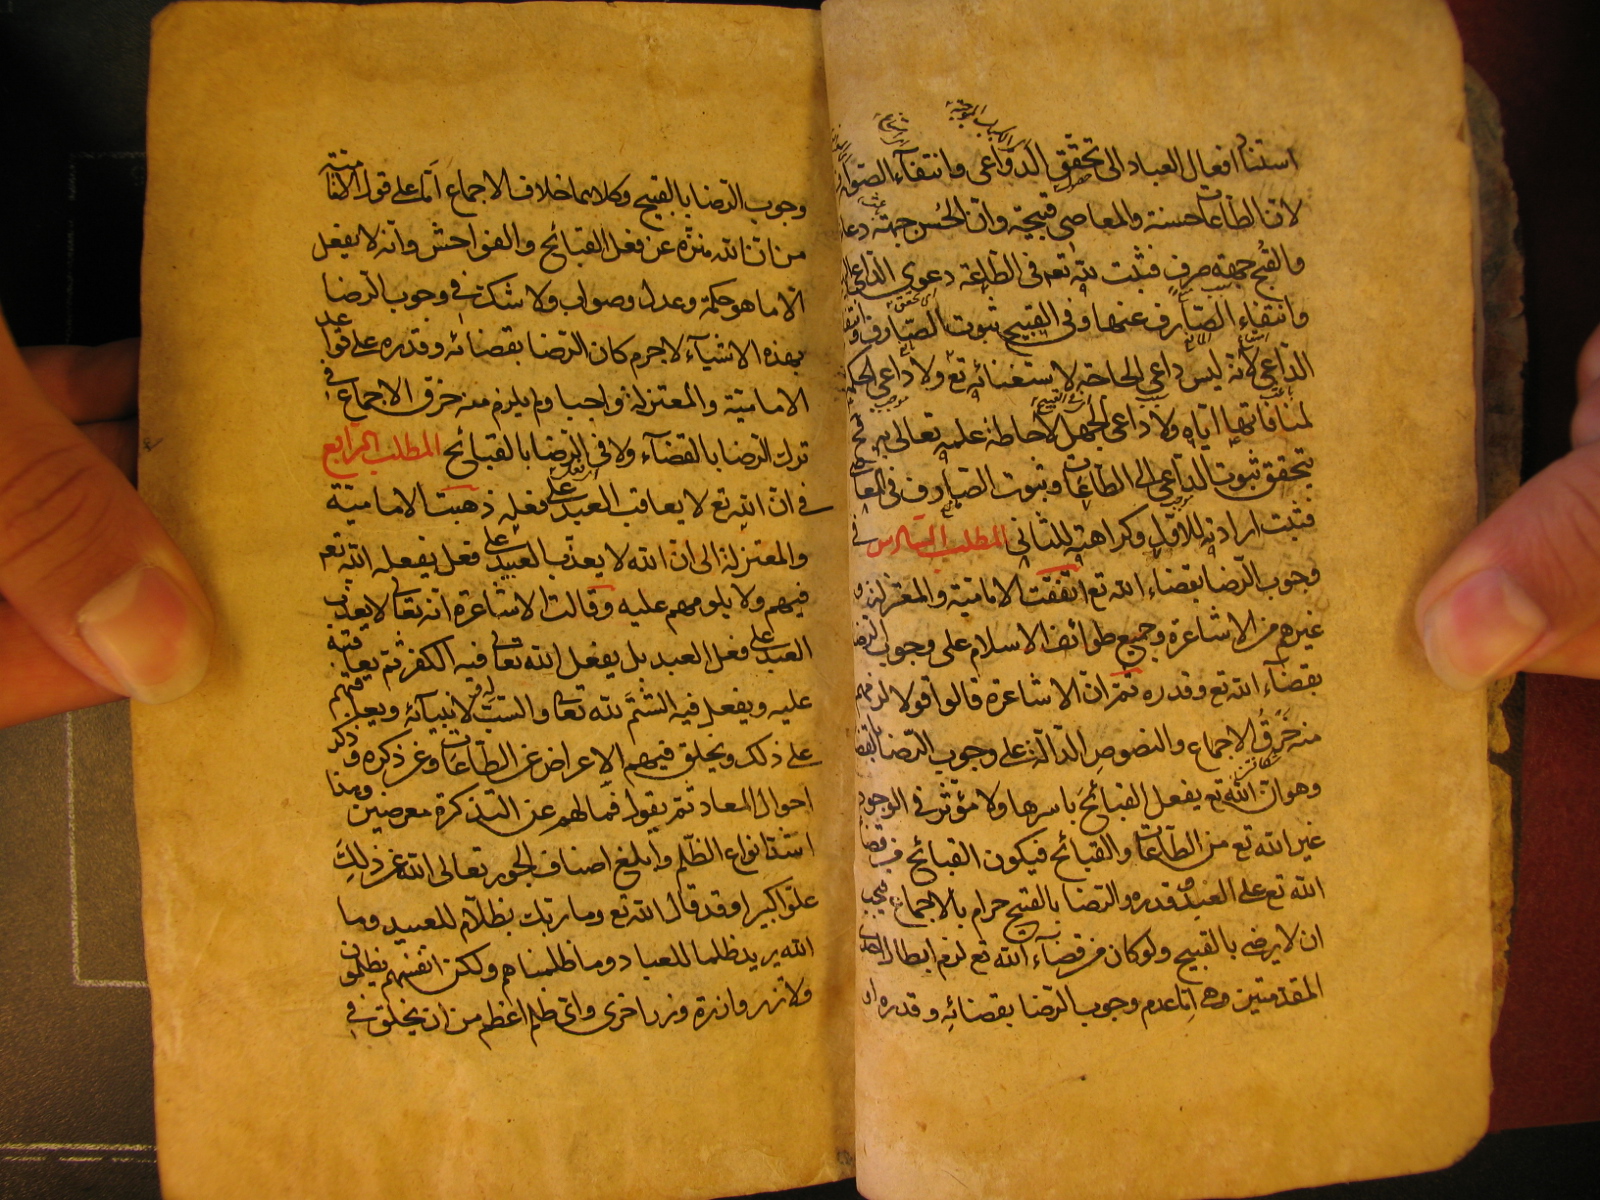 استناد افعال العباد الى تحقق الدواعى وانتفاء الصوارف
لان الطاعات حسنة والمعاصى قبيحة وان الحسن جهة دعاء
والقبح جهة صرف فثبت لله تعه فى الطاعة دعوى الداعى اليها
وانتفاء الصارف عنها وفى القبيح ثبوت الصارف وانتفاء
الداعى لانه ليس داعى الحاجة لاستغنائه تع ولا داعى الحكمة
لمنافاتها اياه ولا داعى الجهل لاحاطة علمه تعالى به فح
يتحقق ثبوت الداعى الى الطاعات وثبوت الصارف فى المعاصى
فثبت ارادته للاول وكراهته للثانى المطلب السادس فى
وجوب الرضا بقضاء الله تع اتفقت الامامية والمعتزلة و
غيرهم من الاشاعرة وجميع طوائف الاسلام على وجوب الرضا
بقضاء الله تع وقدره ثم ان الاشاعرة قالوا قولا لزمهم
منه خرق الاجماع والنصوص الدالة على وجوب الرضا بالقضاء
وهو ان الله تع يفعل القبائح باسرها ولا مؤثر فى الوجود
غير الله تع من الطاعات والقبائح فيكون القبائح من قضاء
الله تع على العبد وقدره والرضا بالقبيح حرام بالاجماع فيجب
ان لا يرضى بالقبيح ولو كان من قضاء الله تع لزم ابطال احدى
المقدمتين وهى اما عدم وجوب الرضا بقضائه وقدره او
وجوب الرضا بالقبيح وكلاهما خلاف الاجماع اما على قول الامامية
من ان الله منزه عن فعل القبائح والفواحش وانه لا يفعل
الا ما هو حكمة وعدل وصواب ولا شك فى وجوب الرضا
بهذه الاشياء لا جرم كان الرضا بقضائه وقدره على قواعد
الامامية والمعتزلة واجبا ولم يلزم منه خرق الاجماع فى
ترك الرضا بالقضاء ولا فى الرضا بالقبائح المطلب الرابع
فى ان الله تع لا يعاقب العبد على فعله ذهبت الامامية
والمعتزلة الى ان الله لا يعذب العبيد على فعل يفعله الله تعه
فيهم ولا يلومهم عليه وقالت الاشاعرة انه تعالى لا يعذب
العبد على فعل العبد بل يفعل الله تعالى فيه الكفر ثم يعاقبه
عليه ويفعل فيه الشتم لله تعالى والسب له ولانبيائه ويعاقبهم
على ذلك ويخلق فيهم الاعراض عن الطاعات وعن ذكره وذكر
احوال المعاد ثم يقول فما لهم عن التذكرة معرضين وهذا
اشد انواع الظلم وابلغ اصناف الجور تعالى الله عن ذلك
علوا كبيرا وقد قال الله تع وما ربك بظلام للعبيد وما
الله يريد ظلما للعباد وما ظلمناهم ولكن انفسهم يظلمون
ولا تزر وازرة وزر اخرى واى ظلم اعظم من ان يخلق فى